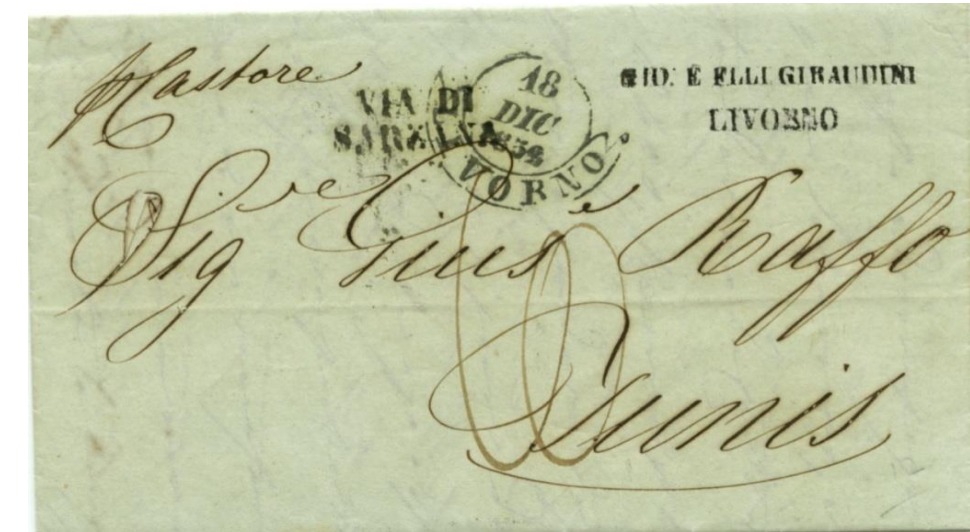 p Castore
VIA DI
SARZANA
18
DIC
1854
LIVORNO
GIO. E FLLI GIRAUDINI
LIVORNO
Sig.re Gius.e Raffo
Tunis